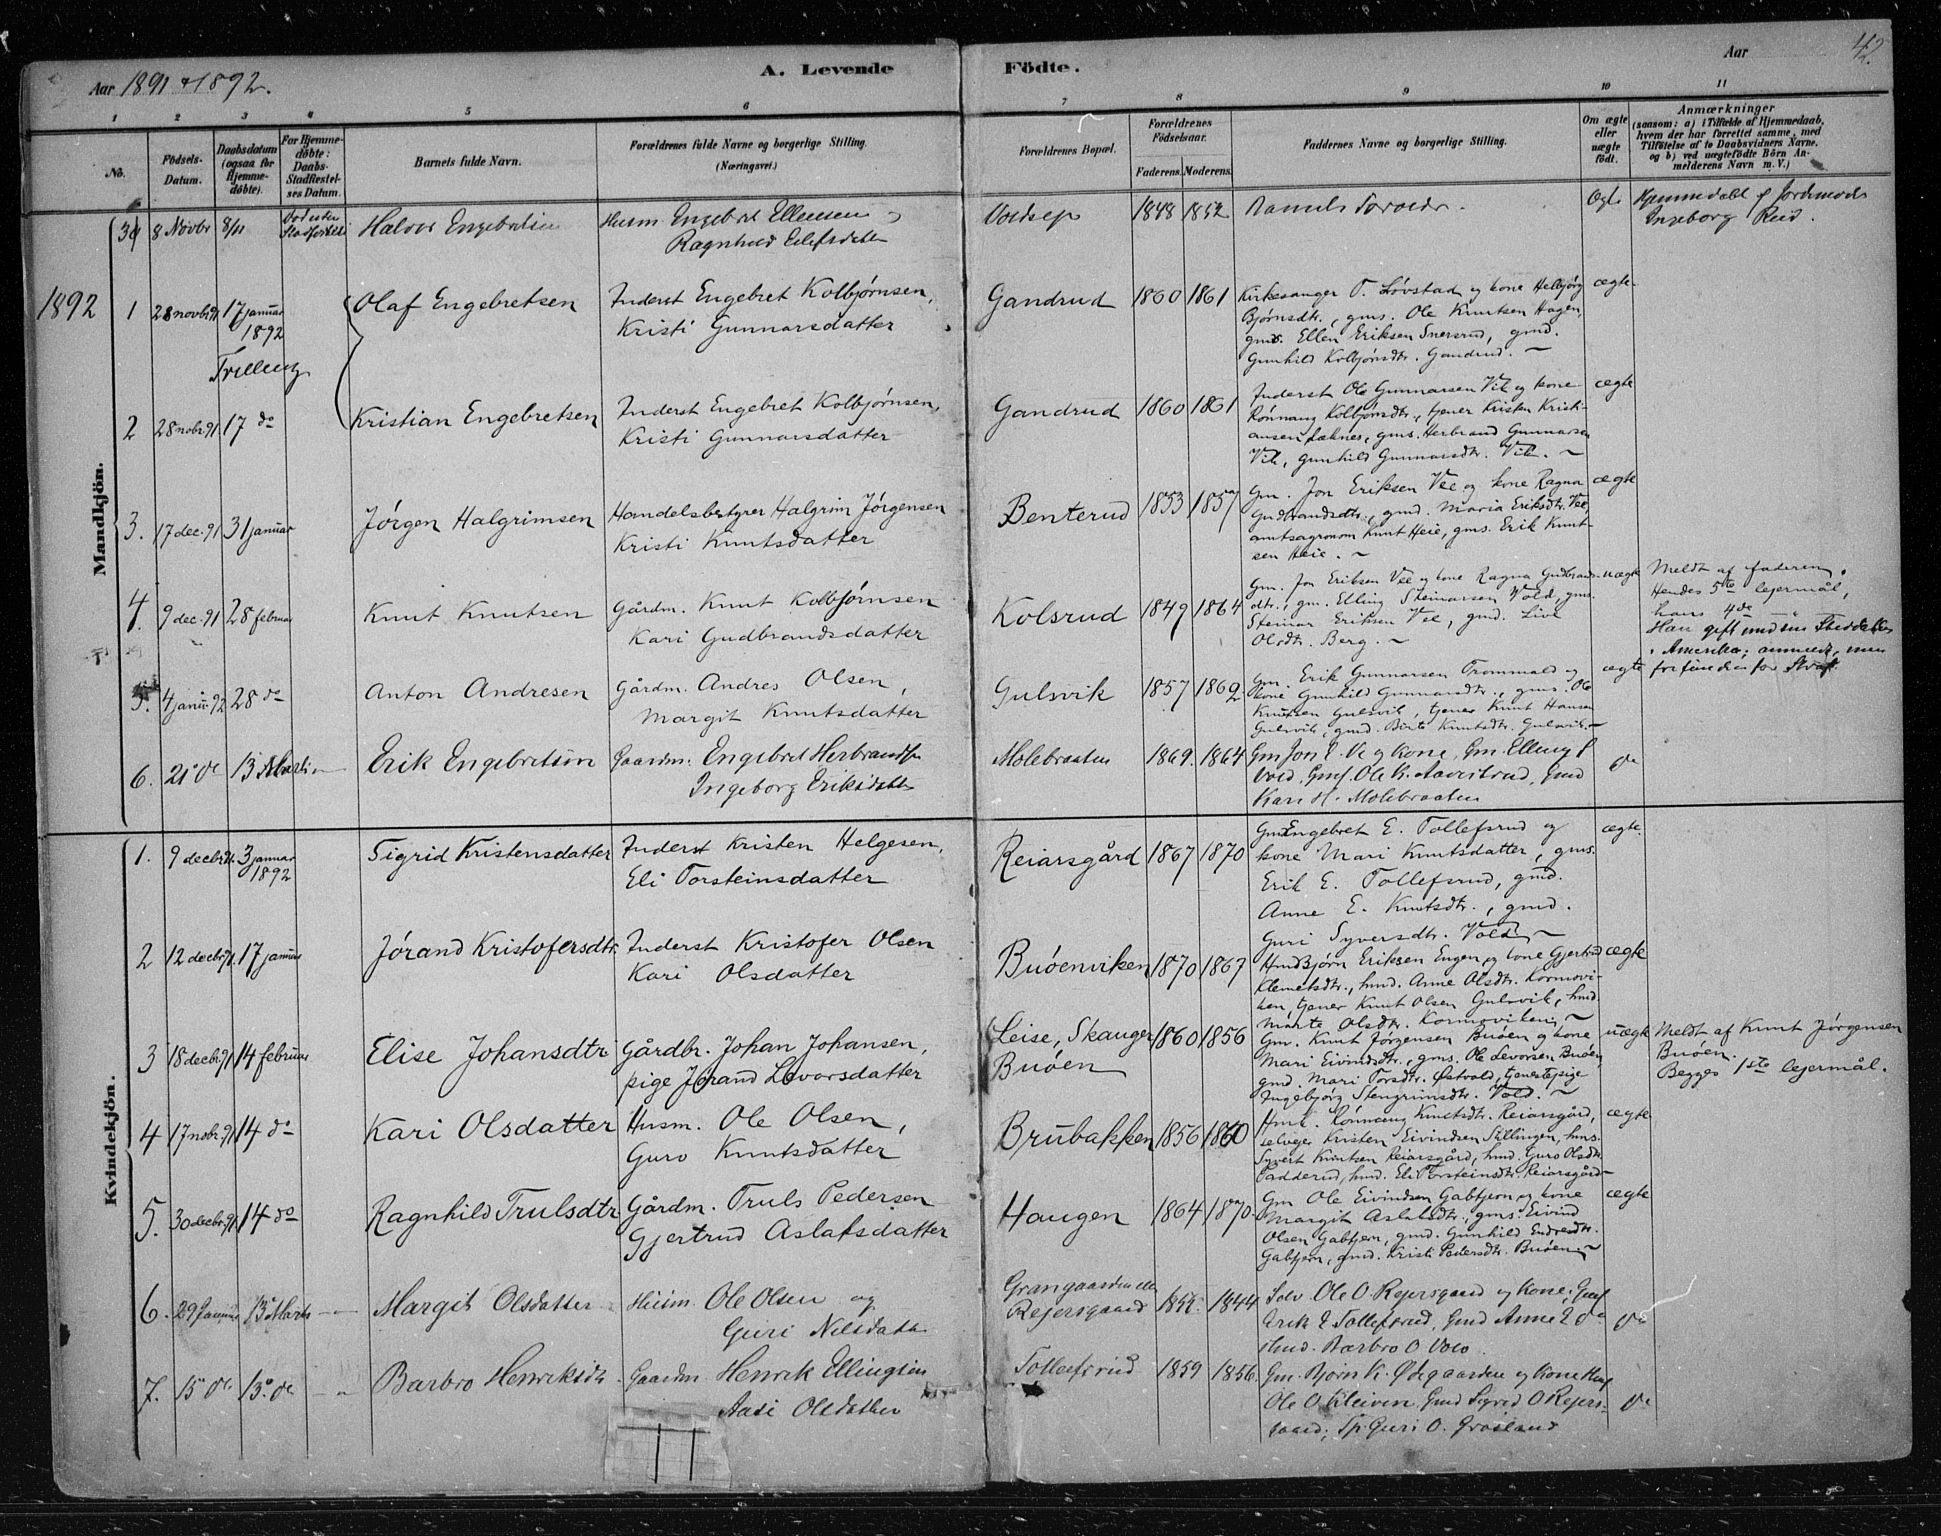 Aar 1891 & 1892.
A. Levende Födte.
Aar
42.
1 2 3 4 5 6 7 8 9 10 11
No.
Födsels-Datum.
Daabsdatum (ogsaa for Hjemmedöbte).
For Hjemmedöbte: Daabs-Stadfæstelses Datum.
Barnets fulde Navn.
Forældrenes fulde Navne og borgerlige Stilling.
(Næringsvei.)
Forældrenes Bopæl.
Forældrenes Födselsaar.
Faderens. Moderens.
Faddernes Navne og borgerlige Stilling.
Om ægte eller uægte födt.
Anmærkninger
(saasom: a) i Tilfælde af Hjemmedaab,
hvem der har forrettet samme, med
Tilföielse af to Daabsvidners Navne.
og b) ved uægtefödte Börn Anmelderens Navn m. V.)
Mandkjön.
8 Novbr 8/11 Halvor Engebretsen Husm Engebret Ellensen og Voldsep 1848 1852 Ægte
Ragnhild Eilefsdatter
Ingeborg Rud.
1892
1 28 novbr. 91 17 januar 1892 Olaf Engebretsen Inderst Engebret Kolbjørnsen, Gandrud 1860 1861 Kirkesanger T. Løvstad og kone Helbjørg ægte
Kristi Gunnarsdatter Bjørnsdtr., gms. Ole Knutsen Hagen,
gmd. Ellen Eriksen Snersrud, gmd.
Gunhild Kolbjørnsdtr. Gandrud. ~
Trilling
2 28 nobr. 91. 17 do Kristian Engebretsen Inderst Engebret Kolbjørnsen, Gandrud 1860 1861 Inderst Ole Gunnarsen Vik og kone ægte
Kristi Gunnarsdatter Rønnaug Kolbjørnsdtr., tjener Kristen Kristi-
ansen Løknes, gms. Herbrand Gunnarsen
Vik, gunhild Gunnarsdtr. Vik. ~
3. 17 dec. 91 31 januar Jørgen Halgrimsen Handelsbestyrer Halgrim Jørgensen Benterud 1853 1857 Gm. Jon Eriksen Vee og kone Ragna ægte
Kristi Knutsdatter Gudbrandsdtr., gmd. Maria Eriksdtr. Vee,
amtsagronom Knut Heie, gms. Erik Knut-
sen Heie. ~
4. 9 dec. 91 28 februar Knut Knutsen Gårdm. Knut Kolbjørnsen Kolsrud 1849 1864 Gm. Jon Eriksen Vee og kone Ragna Gudbrands- uægte Meldt af faderen.
Kari Gudbrandsdatter dtr., gm. Elling Steinarsen Vold, gms. Hendes 5te lejermål,
Steinar Eriksen Vee, gmd. Live hans 4de
Olsdtr. Berg. ~
5. 4 janu. 92 28 do Anton Andresen Gårdm. Andres Olsen, Gulsvik 1857 1862 Gm. Erik Gunnarsen Trommald og ægte
Margit Knutsdatter kone Gunhild Gunnarsdtr., gms. Ole
Knutsen Gulsvik, tjener Knut Hansen
Gulsvik, gmd. Birte Knutsdtr. Gulsvik. ~
6. 21 de 13 Marts Erik Engebretsen Gaardm. Engebret Herbrands. Molebraaten 1869. 1864 Gm Jon E. Ve og kone, Gm. Elling S do
Ingeborg Eriksdatter Vold, Gms. Ole K. Aavestrud, Gmd
Kari H. Molebraaten
Kvindekjön.
1. 9 decbr. 91. 3 januar 1892 Sigrid Kristensdatter Inderst Kristen Helgesen, Reiarsgård 1867 1870 Gm Engebret E. Tollefsrud og ægte.
Eli Torsteinsdatter kone Mari Knutsdatter, gms.
Erik E. Tollefsrud, gmd.
Anne E. Knutsdtr., gmd.
Guri Syversdtr. Vold. ~
2 12 decbr. 91. 17 januar Jørand Kristofersdtr. Inderst Kristofer Olsen Buøenviken 1870 1867 Hmd Bjørn Eriksen Engen og kone Gjertrud ægte
Kari Olsdatter Klemetsdtr., hmd. Anne Olsdtr. Kormovi-
ken, tjener Knut Olsen Gulsvik, hmd.
Marte Olsdtr. Kormoviken. ~
3 18 decbr. 91 14 februar Elise Johansdtr Gårdbr. Johan Johansen, Leise, Skauger 1860 1856 Gm. Knut Jørgensen Buøen og kone uægte Meldt af Knut Jørgensen
pige Jørand Levorsdatter Buøen Mari Eivindsdtr., gms. Ole Levorsen Buøen, Buøen.
gmd. Mari Torsdtr. Østvold, tjenestepige Begges 1ste lejermål.
Ingebjørg Stengrimsdtr. Vold. ~
4 17 nobr. 91 14 do Kari Olsdatter Husm. Ole Olsen, Brubakken 1856 1860 Hmk. Rønnaug Knutsdtr. Reiarsgård, ægte
Guro Knutsdatter selveger Kristen Eivindsen Skillingen, hms.
Syvert Knutsen Reiarsgård, hmd. Guro Olsdtr.
Padderud, hmd. Eli Torsteinsdtr. Reiarsgård ~
5. 30 decbr. 91. 14 do Ragnhild Trulsdtr Gårdm. Truls Pedersen Haugen 1864 1870 Gm Ole Eivindsen Gabtjern og kone ægte
Gjertrud Aslaksdatter Margit Aslaksdtr., gms. Eivind
Olsen Gabtjern, gmd. Gunhild Endresdtr.
Gabtjern, gmd. Kristi Pedersdtr. Buøen. ~
6. 29 Januar 13 Marts Margit Olsdatter Husm. Ole Olsen og Grangaarden 1844 Selv. Ole O. Rejersgaard og kone, Gms do
Guri Nilsdatter Rejersgaard Erik E Tollefsrud, Gmd Anne E do
Hmd. Barbro O Vold
7. 15 de. 13. de Barbro Henriksdtr. Gaardm Henrik Ellingsen Tollefsrud 1859 1856. Gm. Bjørn K. Ødegaarden og kone, Hms do
Aase Olsdatter Ole O. Kleiven, Gmd Sigrid O Rejers-
gaard, Sp. Guri O. Grøsland